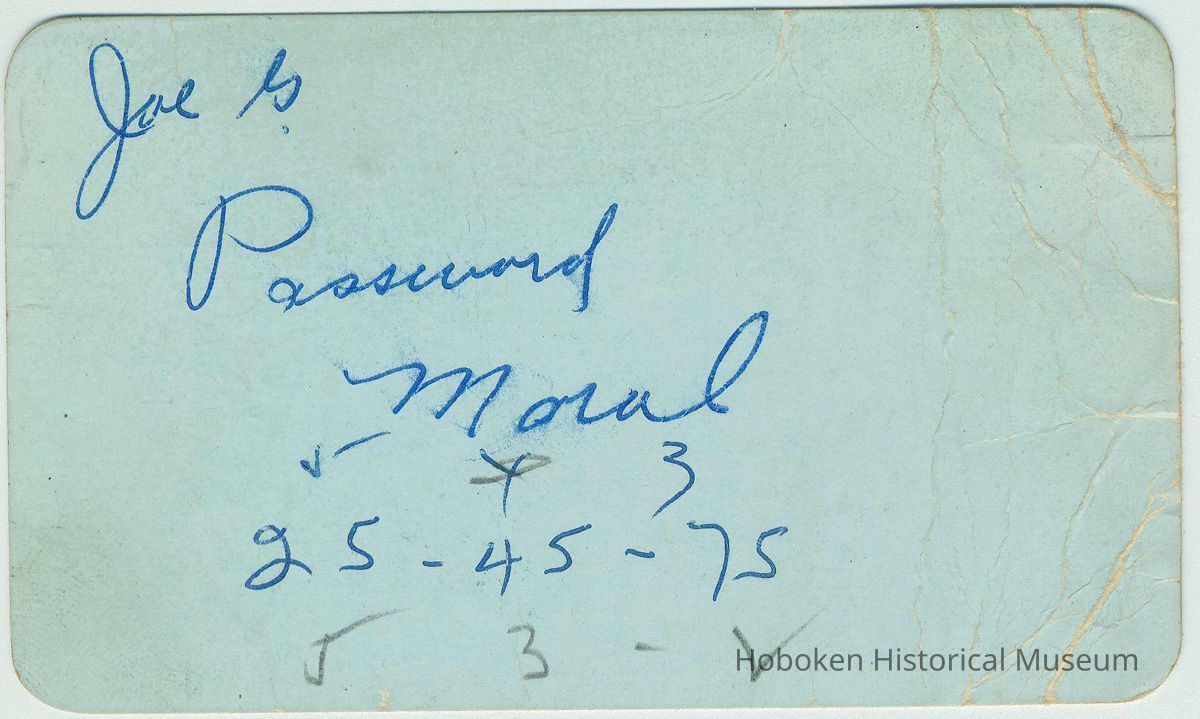 Joe G.
Password
Moral
5 4 3
25-45-75
5 3 - V
Hoboken Historical Museum